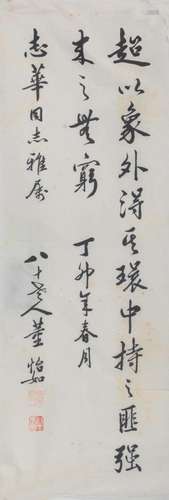 超以象外得其環中持之匪强
来之無窮
丁卯年春月
志華同志雅属
八十老人董怡如